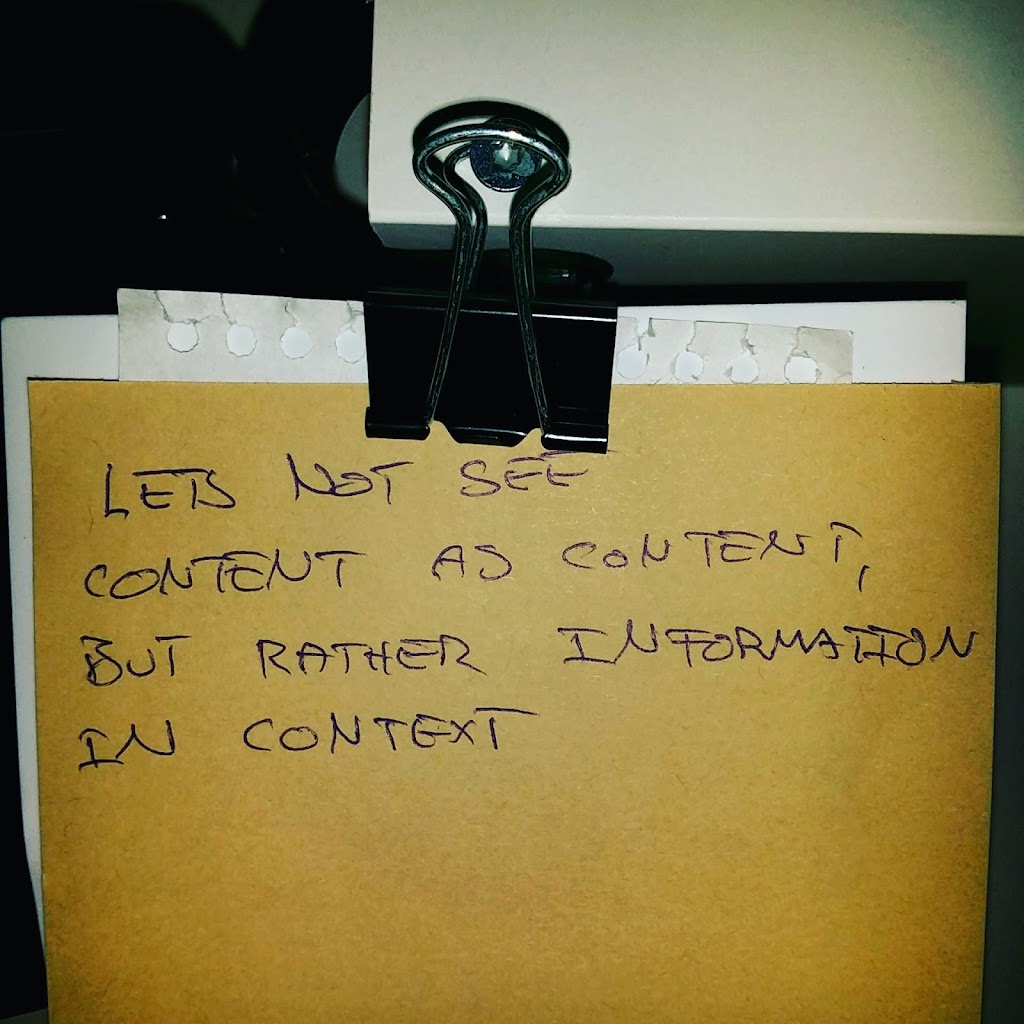 LETS NOT SEE
CONTENT AS CONTENT,
BUT RATHER INFORMATION
IN CONTEXT